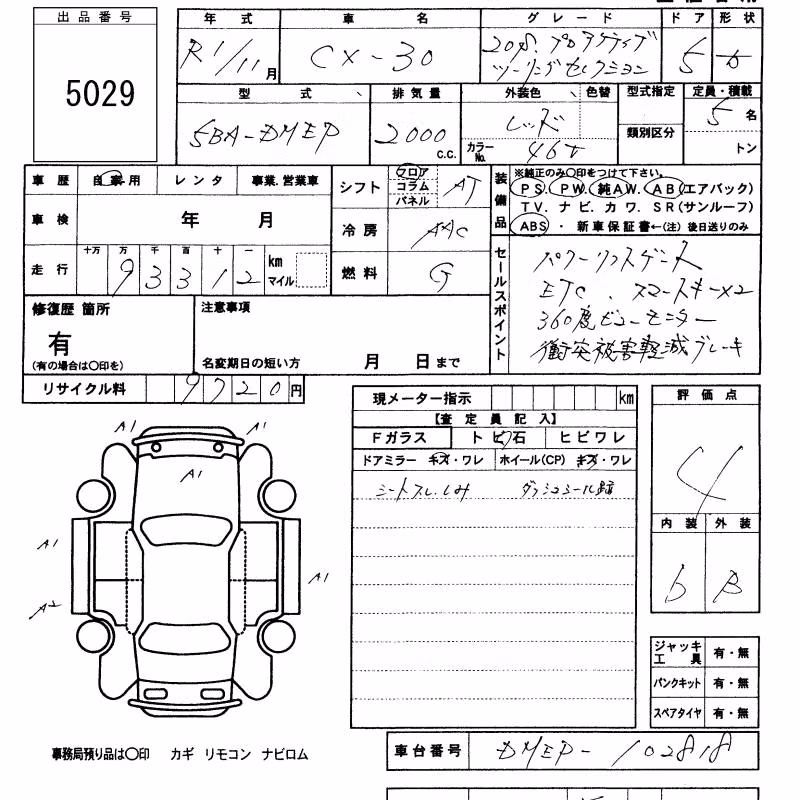 出品番号
5029
年式 車名 グレード ドア 形状
R1/11月 CX-30 20S.プロアクティブ 5
ツーリングセレクション
型式 排気量 外装色 色替 型式指定 定員・積載
5BA-DMEP 2000 c.c. レッド 5名
カラーNo. 46V 類別区分 トン
車歴 自家用 レンタ 事業.営業車
シフト フロア コラム パネル AT
装備品 ※純正のみ〇印をつけて下さい。
PS. PW. 純AW. AB(エアバック)
TV. ナビ. カワ. SR(サンルーフ)
ABS ・ 新車保証書←(注) 後日送りのみ
車検 年 月
冷房 AAC
走行 十万 万 千 百 十 一
93312 km マイル
燃料 G
セールスポイント
パワーリフトゲート
ETC. スマートキー×2
360度ビューモニター
衝突被害軽減ブレーキ
修復歴 箇所
有
(有の場合は〇印を)
注意事項
名変期日の短い方 月 日まで
リサイクル料 9720円
現メーター指示 km
【査定員記入】
Fガラス トビ石 ヒビワレ
ドアミラー キズ・ワレ ホイール(CP) キズ・ワレ
シートスレ.シミ ダッシュシール跡
評価点
4
内装 外装
b B
A1 A1
A1
A1 A1
A2
ジャッキ 工具 有・無
パンクキット 有・無
スペアタイヤ 有・無
事務局預り品は〇印 カギ リモコン ナビロム
車台番号 DMEP-102818